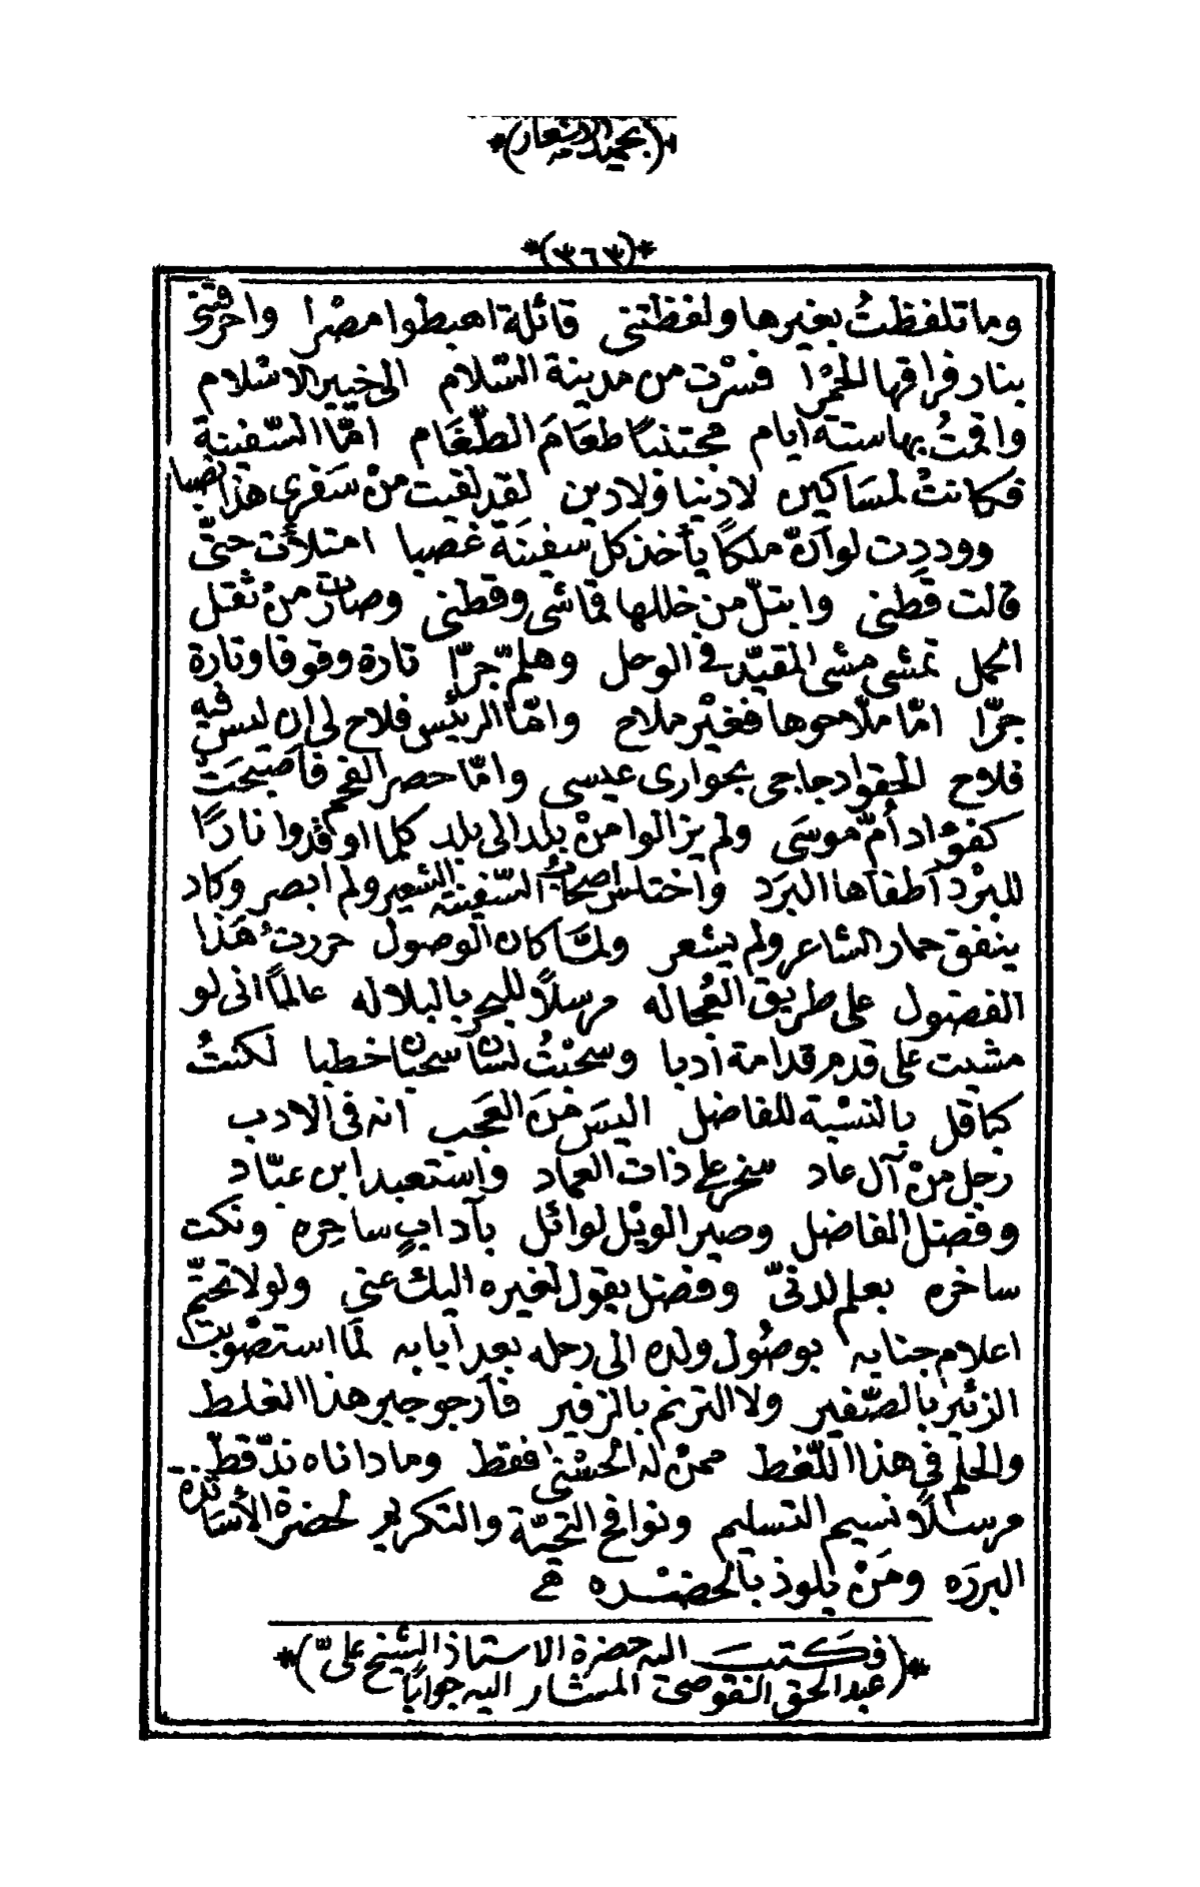 *(٣٦٣)*
وما تلفظتُ بغيرها ولفظتنى قائلة اهبطوا مصْرا واحرقتنى
بنار فراقها الحمْرا فسرْت من مدينة السّلام الى خيبر الاسْلام
واقمتُ بها ستة ايام مجتنبًا طعَامَ الطّغَام امّا السّفينة
فكانتْ لمسَاكين لا دنيا ولا دين لقد لقيت منْ سَفرى هذا نصبا
ووددت لو انّ ملكًا يأخذ كل سفينَة غصبا امتلأت حتّى
قالت قطنى وابتلّ من خللها قماشى وقطنى وصارتْ منْ ثقل
الحمل تمشى مشى المقيّد فى الوحل وهلم جرّا تارة وقوفا وتارة
جرّا امّا ملّاحوها فغيْر ملاح وامّا الريّس فلاح لى ان ليس فيه
فلاح الحقوا دجاجى بجوارى عيسى وامّا حصر الفحم فأصبحَتْ
كفؤاد أمّ موسَى ولم يزالوا منْ بلد الى بلد كلما اوقدوا نارًا
للبرْد أطفأها البرَد واختلس اصحاب السّفينة الشعير ولم ابصر وكاد
ينفق حمار الشاعر ولم يشعر ولمَّا كان الوصول حررتُ هَذا
الفضول على طريق العُجاله مرسلًا للبحر بالبلاله عالمًا انى لو
مشيت على قدم قدامة أدبا وسحبْتُ لسَان سحبان خطبا لكنتُ
كباقل بالنسْبة للفاضل اليسَ منَ العَجب انه فى الادب
رَجل منْ آل عاد سخر على ذات العماد واستعبد ابن عبّاد
وفصّل المفاضل وصير الويْل لوائل بآدابٍ ساحِره ونكت
ساخره بعلم لدنىّ وفضل يقول لغيره اليك عنى ولولا تحتّم
اعلام جنابه بوصُول ولده الى رحله بعد أيابه لمَا استصْوبت
الزئير بالصّفير ولا الترنم بالزفير فأرجو جبر هذا الغلط
والحلم فى هذا اللّغط ممنْ له الحسْنى فقط وما داناه ندّ قطّ
مرسلًا نسيم التسليم ونوافح التحيّة والتكريم لحضرة الأسَاتذة
البررَه ومَنْ يلوذ بالحضْره
*(فكتبَ اليه حضرة الاستاذ الشيخ علىّ)*
عبد الحق القوصىّ المشار اليه جوابًا